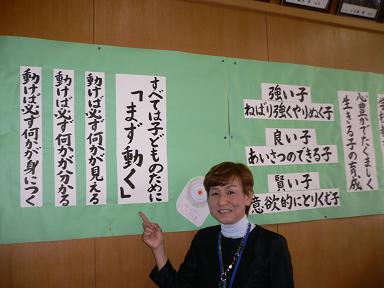 すべては子どものために
「まず動く」
動けば必ず何かが見える
動けば必ず何かが分かる
動けば必ず何かが身につく
強い子
ねばり強くやりぬく子
良い子
あいさつのできる子
賢い子
意欲的にとりくむ子
心豊かでたくましく
生きる子の育成